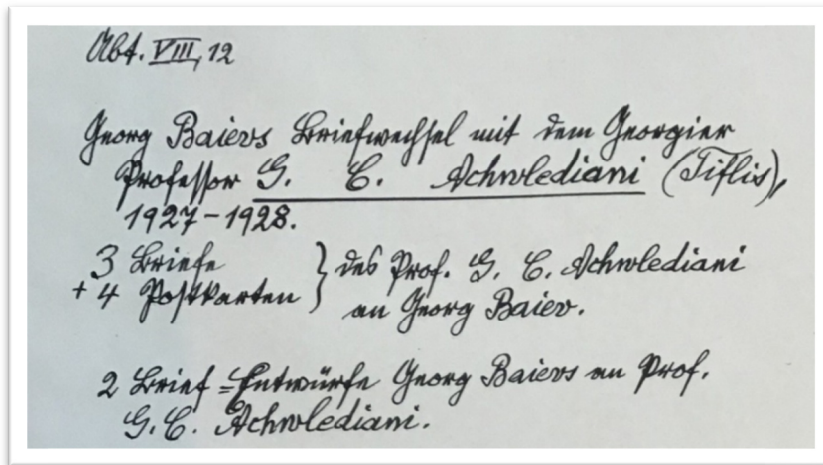 Abt. VIII, 12
Georg Baievs Briefwechsel mit dem Georgier
Professor G. C. Achwlediani (Tiflis),
1927-1928.
3 Briefe
+ 4 Postkarten } des Prof. G. C. Achwlediani
an Georg Baiev.
2 Brief=Entwürfe Georg Baievs an Prof.
G. C. Achwlediani.